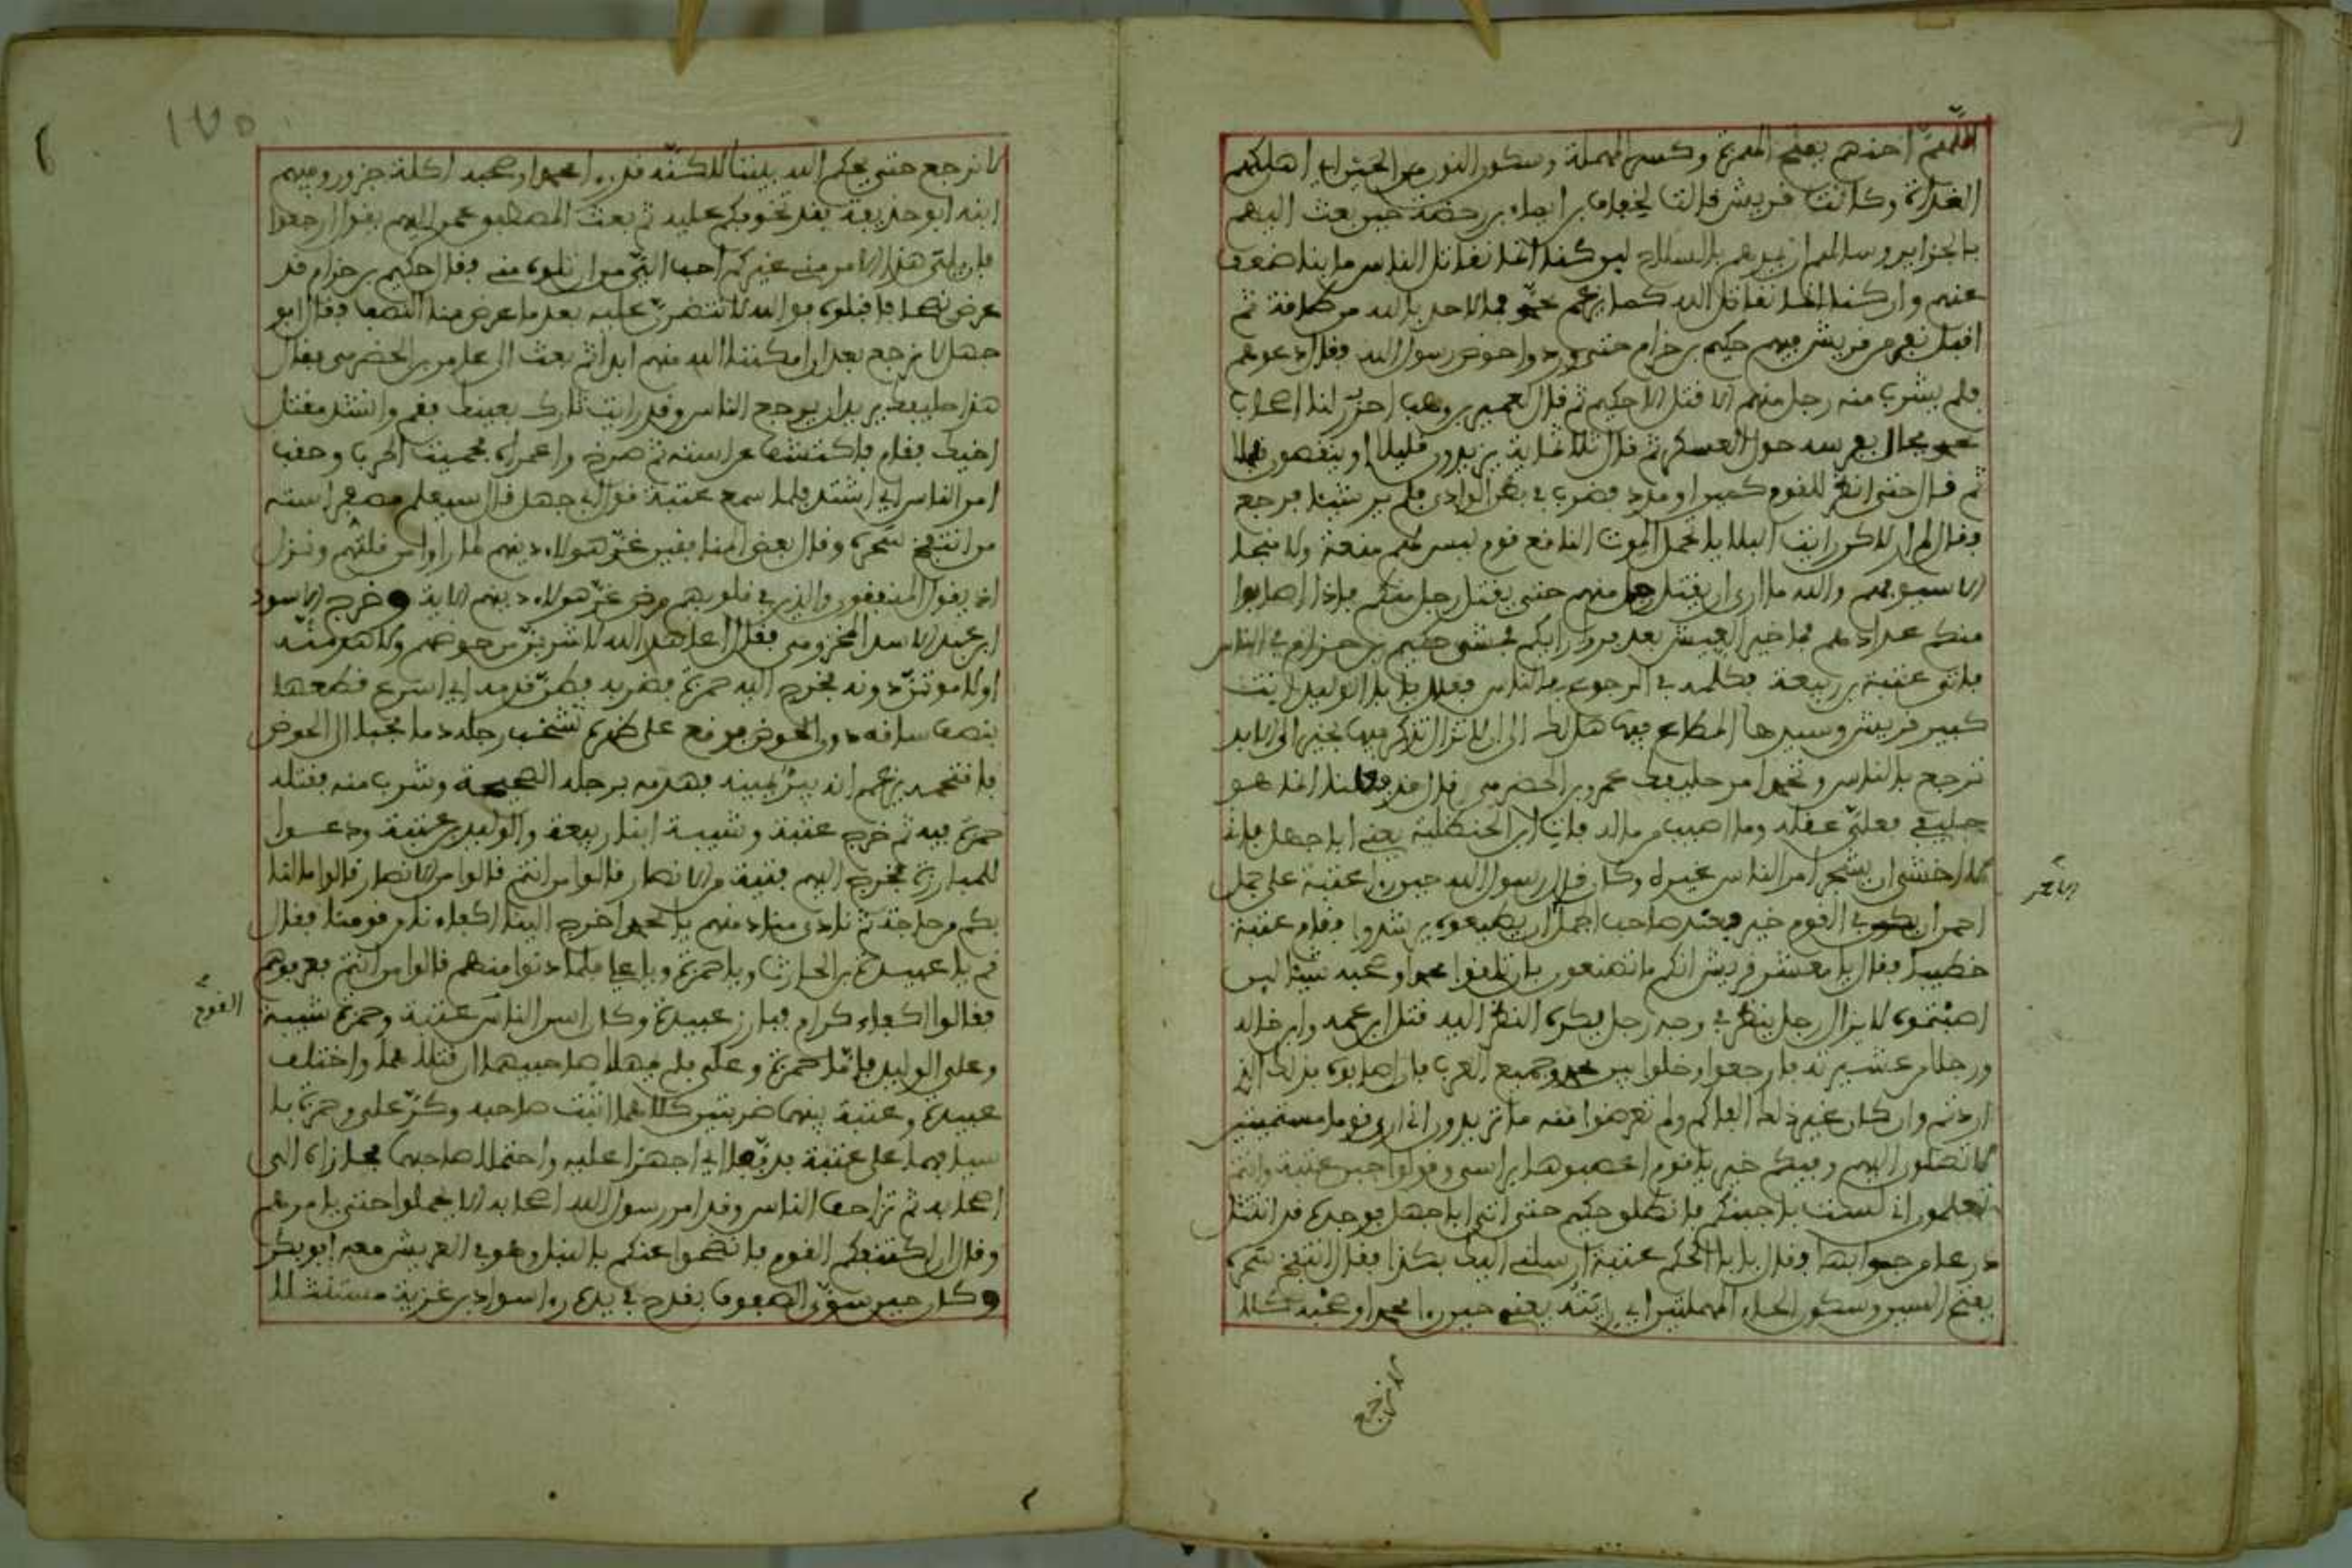 اللهم احنهم بفتح الهمزة وكسر المهملة وسكون النون من الحين اي اهلكهم
الغداة وكانت قريش قالت لخفاف بن ايماء بن رحضة حين بعث اليهم
بالجزاير وسالهم ان يمدهم بالسلاح لين كنا انما نقاتل الناس ما بنا ضعف
عنهم وان كنا انما نقاتل الله كما يزعم محمد فما لاحد بالله من طاقة ثم
اقبل نفر من قريش فيهم حكيم بن حزام حتى وردوا حوض رسول الله فقال دعوهم
فلم يشرب منه رجل منهم الا قتل الا حكيم ثم قال لعمير بن وهب احزر لنا اصحاب
محمد فجال بفرسه حول العسكر ثم قال ثلاثماية يزيدون قليلا او ينقصون
ثم قال حتى انظر للقوم كمين او مدد فضرب في بطن الوادي فلم ير شيئا فرجع
وقال لم ار لاكن رايت البلايا تحمل الموت الناقع قوم ليس لهم منعة ولا ملجا
الا سيوفهم والله ما ارى ان يقتل رجل منهم حتى يقتل رجل منكم فاذا اصابوا
منكم عدادهم فما خير العيش بعد فروا رايكم فمشى حكيم بن حزام في الناس
فاتى عتبة بن ربيعة فكلمه في الرجوع بالناس فقال يا ابا الوليد انت
كبير قريش وسيدها المطاع فيها هل لك الى ان لا تزال تذكر فيها بخير الى الابد
ترجع بالناس وتحمل امر حليفك عمرو بن الحضرمي قال قد فعلت انما هو
حليفي فعلي عقله وما اصيب من ماله فات ابن الحنظلية يعني ابا جهل فاني
لا اخشى ان يشجر امر الناس غيره وكان قال رسول الله حين راى عتبة على جمل
احمر ان يكن في القوم خير فعند صاحب الجمل ان يطيعوه يرشدوا فقام عتبة
خطيبا فقال يا معشر قريش انكم ما تصنعون بان تلقوا محمدا وصحبه شيئا لين
اصبتموه لا يزال رجل ينظر في وجه رجل يكره النظر اليه قتل ابن عمه وابن خاله
ورجلا من عشيرته فارجعوا وخلوا بين محمد وجميع العرب فان اصابوه فذلك الذي
اردتم وان كان غير ذلك الفاكم ولم تعرضوا منه ما تريدون اني ارى قوما مستميتين
لا تصلون اليهم وفيكم خير يا قوم اعصبوها براسي وقولوا جبن عتبة وانتم
تعلمون اني لست باجبنكم فانطلق حكيم حتى اتى ابا جهل فوجده قد انتثل
درعا من جرابها وقال يا ابا الحكم عتبة ارسلني اليك بكذا فقال انتفخ سحره
بفتح السين وسكون الحاء المهملتين اي ريته يعني حين راى محمدا وصحبه كلا
الامر
لا نرجع
لا نرجع حتى يحكم الله بيننا لاكنه قد راى محمدا وصحبه اكلة جزور وفيهم
ابنه ابو حذيفة فقد تخوفكم عليه ثم بعث المصطفى عمر اليهم يقول ارجعوا
فان يلي هذا الامر مني غيركم احب الي من ان تلوه مني وقال حكيم بن حزام قد
عرض نصفا فاقبلوه فوالله لا تنتصرن عليه بعد ما عرض منا النصف وقال ابو
جهل لا نرجع بعد ان امكننا الله منهم ابدا ثم بعث الى عامر بن الحضرمي فقال
هذا حليفك يريد ان يرجع الناس وقد رايت ثارك بعينك فقم وانشد مقتل
اخيك فقام فاكتشف عن استه ثم صرخ واعمراه فحميت الحرب وحقب
امر الناس اي اشتد فلما سمع عتبة قول ابي جهل قال سيعلم مصفر استه
من انتفخ سحره وقال بعض المنافقين غر هولاء دينهم لما راوا من قلتهم ونزل
اذ يقول المنافقون والذين في قلوبهم مرض غر هولاء دينهم الاية وخرج الاسود
ابن عبد الاسد المخزومي فقال اعاهد الله لاشربن من حوضهم ولاهدمنه
او لاموتن دونه فخرج اليه حمزة فضربه فطن قدمه اي اسرع قطعها
بنصف ساقه دون الحوض فوقع على ظهره تشخب رجله دما فحبا الى الحوض
فاقتحمه يزعم انه يبر يمينه فهدمه برجله الصحيحة وشرب منه فقتله
حمزة فيه ثم خرج عتبة وشيبة ابنا ربيعة والوليد بن عتبة ودعوا
للمبارزة فخرج اليهم فتية من الانصار قالوا من انتم قالوا من الانصار قالوا ما لنا
بكم من حاجة ثم نادى مناد منهم يا محمد اخرج الينا اكفاءنا من قومنا فقال
قم يا عبيدة بن الحارث ويا حمزة ويا علي فلما دنوا منهم قالوا من انتم فعرفوهم
فقالوا اكفاء كرام فبارز عبيدة وكان اسن الناس عتبة وحمزة شيبة
وعلي الوليد فاما حمزة وعلي فلم يمهلا صاحبيهما ان قتلاهما واختلف
عبيدة وعتبة بينهما ضربتين كلاهما اثبت صاحبه وكر علي وحمزة با
سيافهما على عتبة فدففا اي اجهزا عليه واحتملا صاحبهما فحازاه الى
اصحابه ثم تزاحف الناس وقد امر رسول الله اصحابه الا يحملوا حتى يامرهم
وقال ان اكتنفكم القوم فانضحوا عنكم بالنبل وهو في العريش معه ابو بكر
وكان حين سوى الصفوف بقدح في يده راى سواد بن غزية مستنثلا
القوم
١٧٥